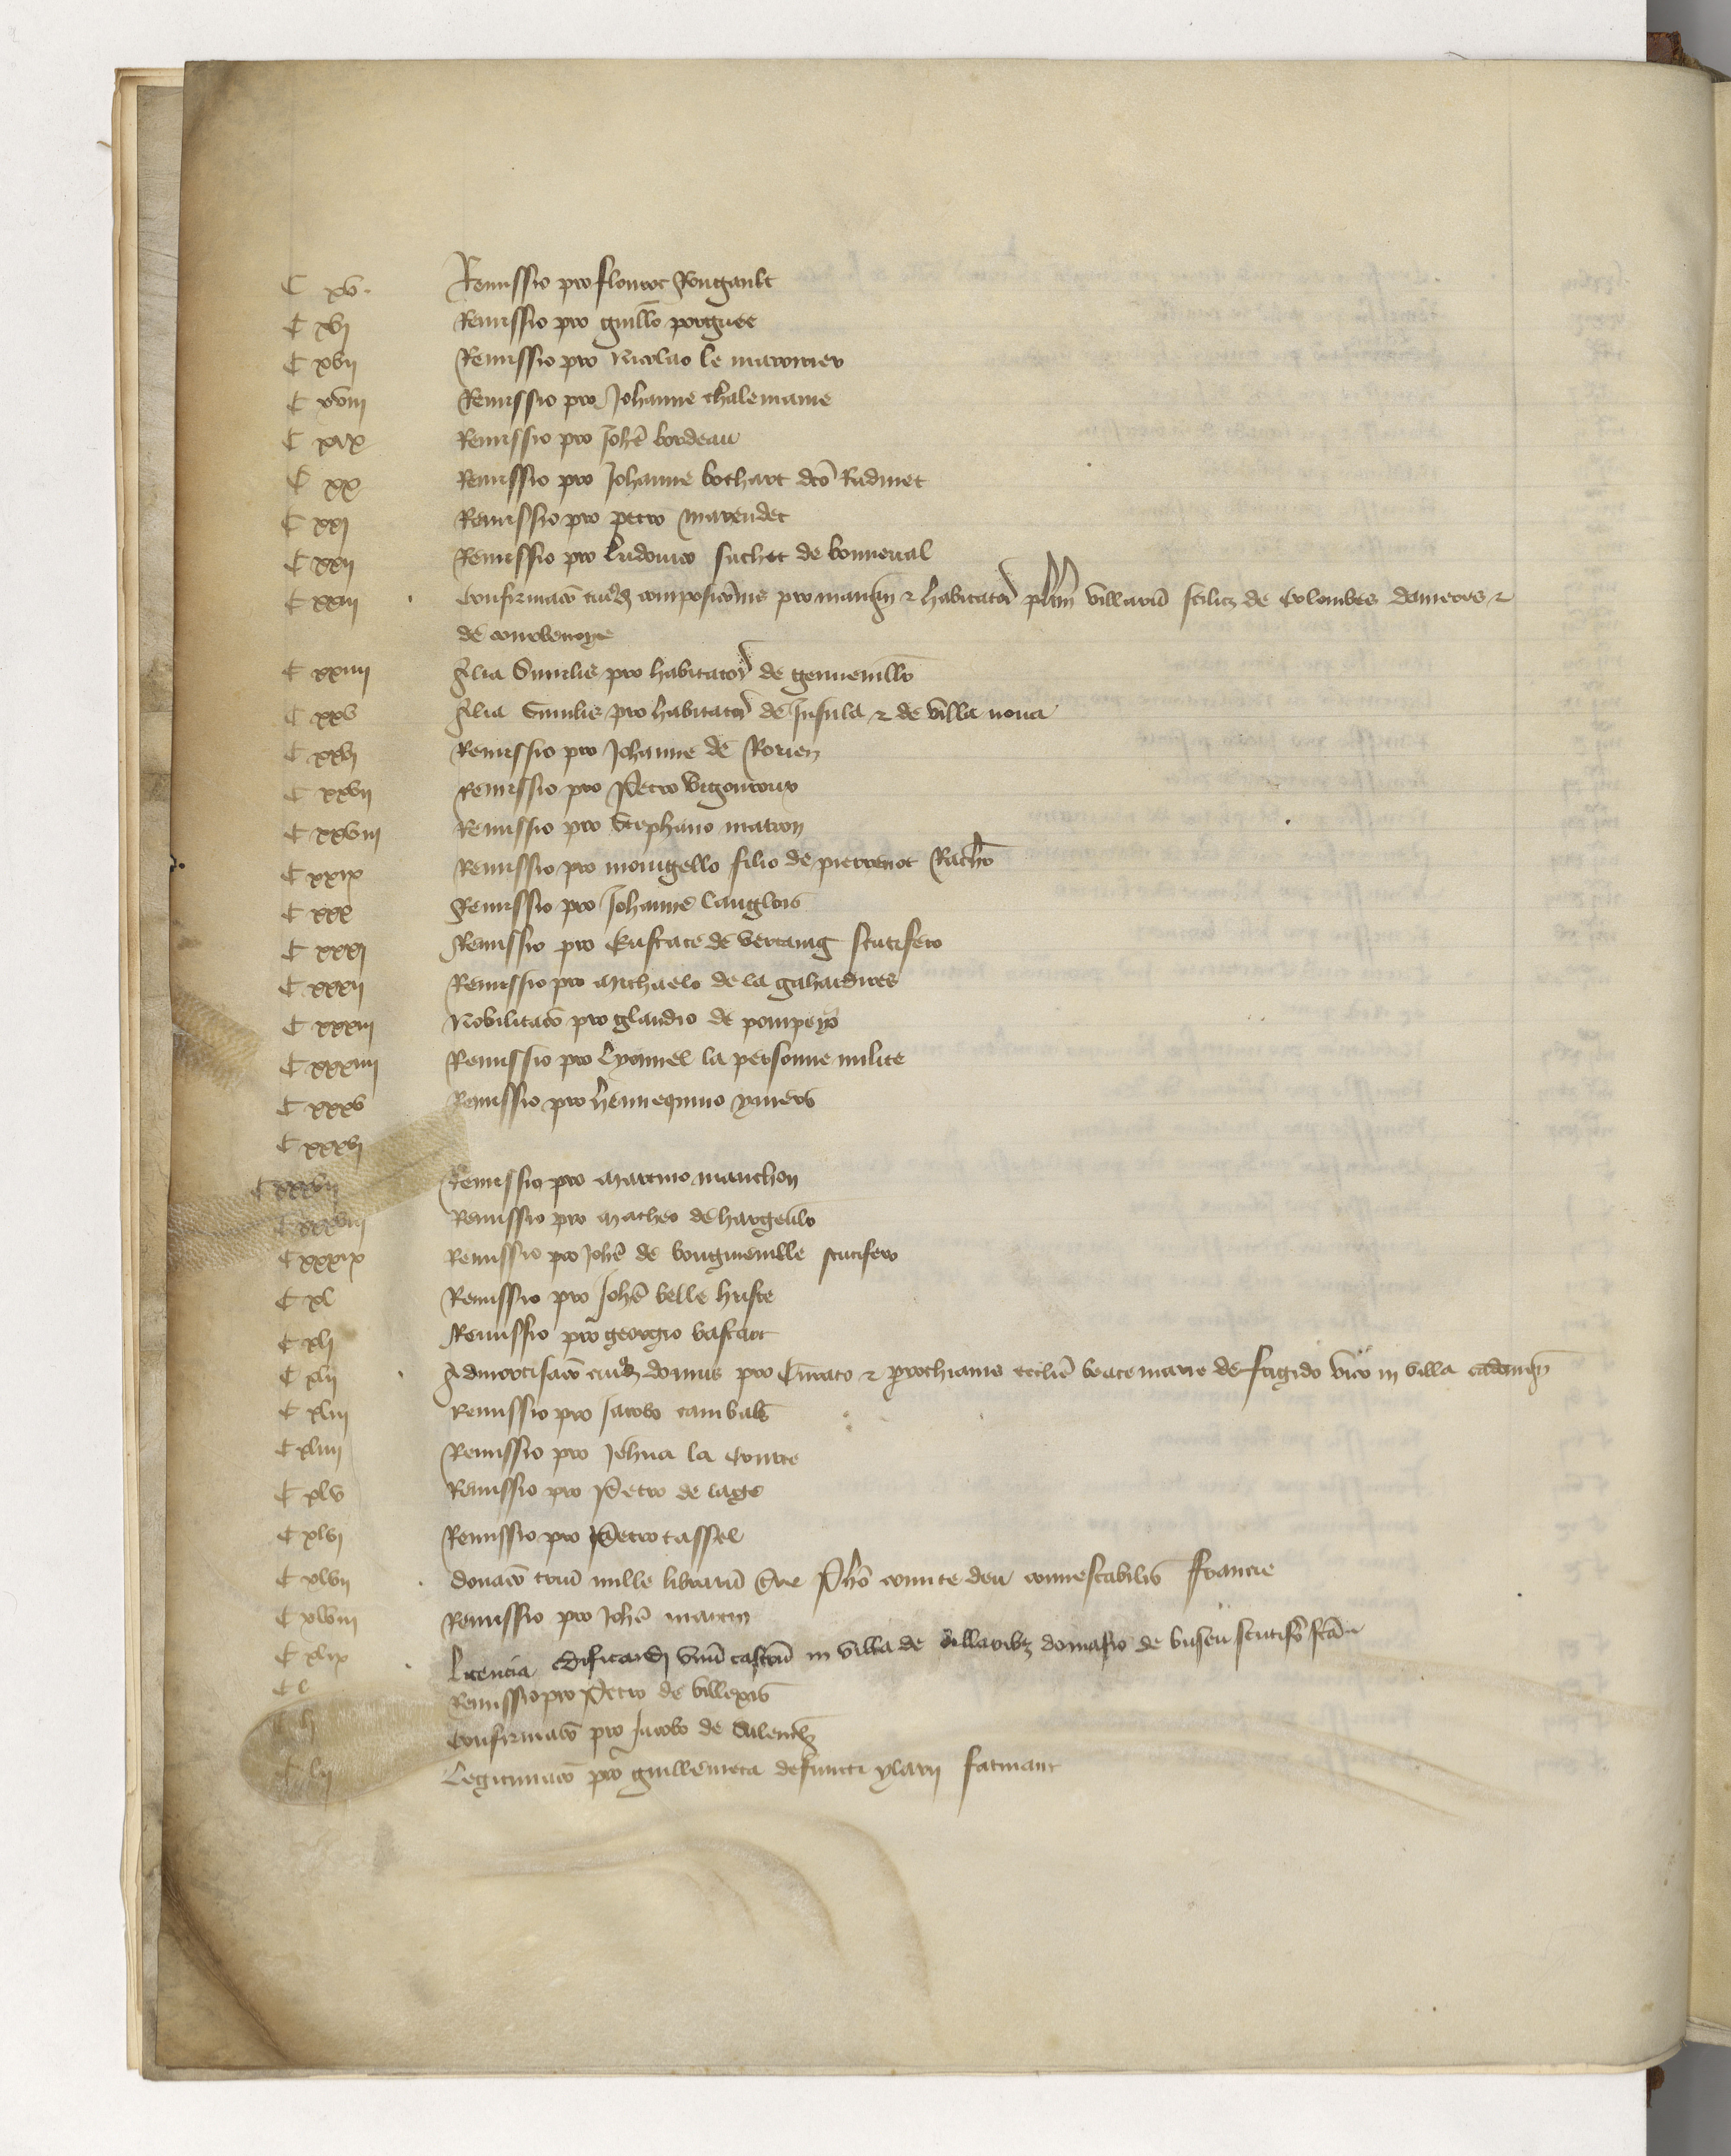 C xv. Remissio pro floncot Rougault
C xvj Remissio pro guillo porguee
C xvij Remissio pro Nicolao le maronnier
C xviij Remissio pro Johanne chalemame
C xix Remissio pro Johe bordeau
C xx Remissio pro Johanne bochart dco Radinet
C xxj Remissio pro petro marendet
C xxij Remissio pro Ludovico suchet de bonneval
C xxiij Confirmaco cuiusd composicois pro manen & habitator plim villaru scilicz de Colombes Asnieres &
de courbevoye
C xxiiij Alia Similis pro habitator de gennevillo
C xxv Alia Similis pro habitator de Insula & de villa nova
C xxvj Remissio pro Johanne de Rorien
C xxvij Remissio pro Petro Vigouroux
C xxviij Remissio pro Stephano matron
C xxix Remissio pro mongello filio de pierrenot
C xxx Remissio pro Johanne langlois
C xxxj Remissio pro Eustacie de vertaing scutifero
C xxxij Remissio pro Michaele de la galiardires
C xxxiij Nobilitaco pro glaudio de pompeyo
C xxxiiij Remissio pro Lyonnel la personne milite
C xxxv Remissio pro Hennequino ymers
C xxxvj
C xxxvij Remissio pro Martino manchon
C xxxviij Remissio pro Matheo de hargevilo
C xxxix Remissio pro Johe de bougmeville scutifero
C xl Remissio pro Johe belle huste
C xlj Remissio pro georgio bastart
C xlij Admortisaco cuiusd domus pro Curato & prochianis ecclie beate marie de frigido vico in villa cadomen
C xliij Remissio pro Jacobo cambale
C xliiij Remissio pro Jehna la Conrte
C xlv Remissio pro Petro de lage
C xlvj Remissio pro Petro tassel
C xlvij donaco triu mille libraru pro Pho comite deu connestabilis Francie
C xlviij Remissio pro Johe martin
C xlix Licencia Edificandi unu castru in villa de villaribz domasio de buseu scutifo
C l Remissio pro Petro de villexis
C lj Confirmaco pro Jacobo de
C lij Legitimaco pro guillemeta defuncti ylarij fatinant